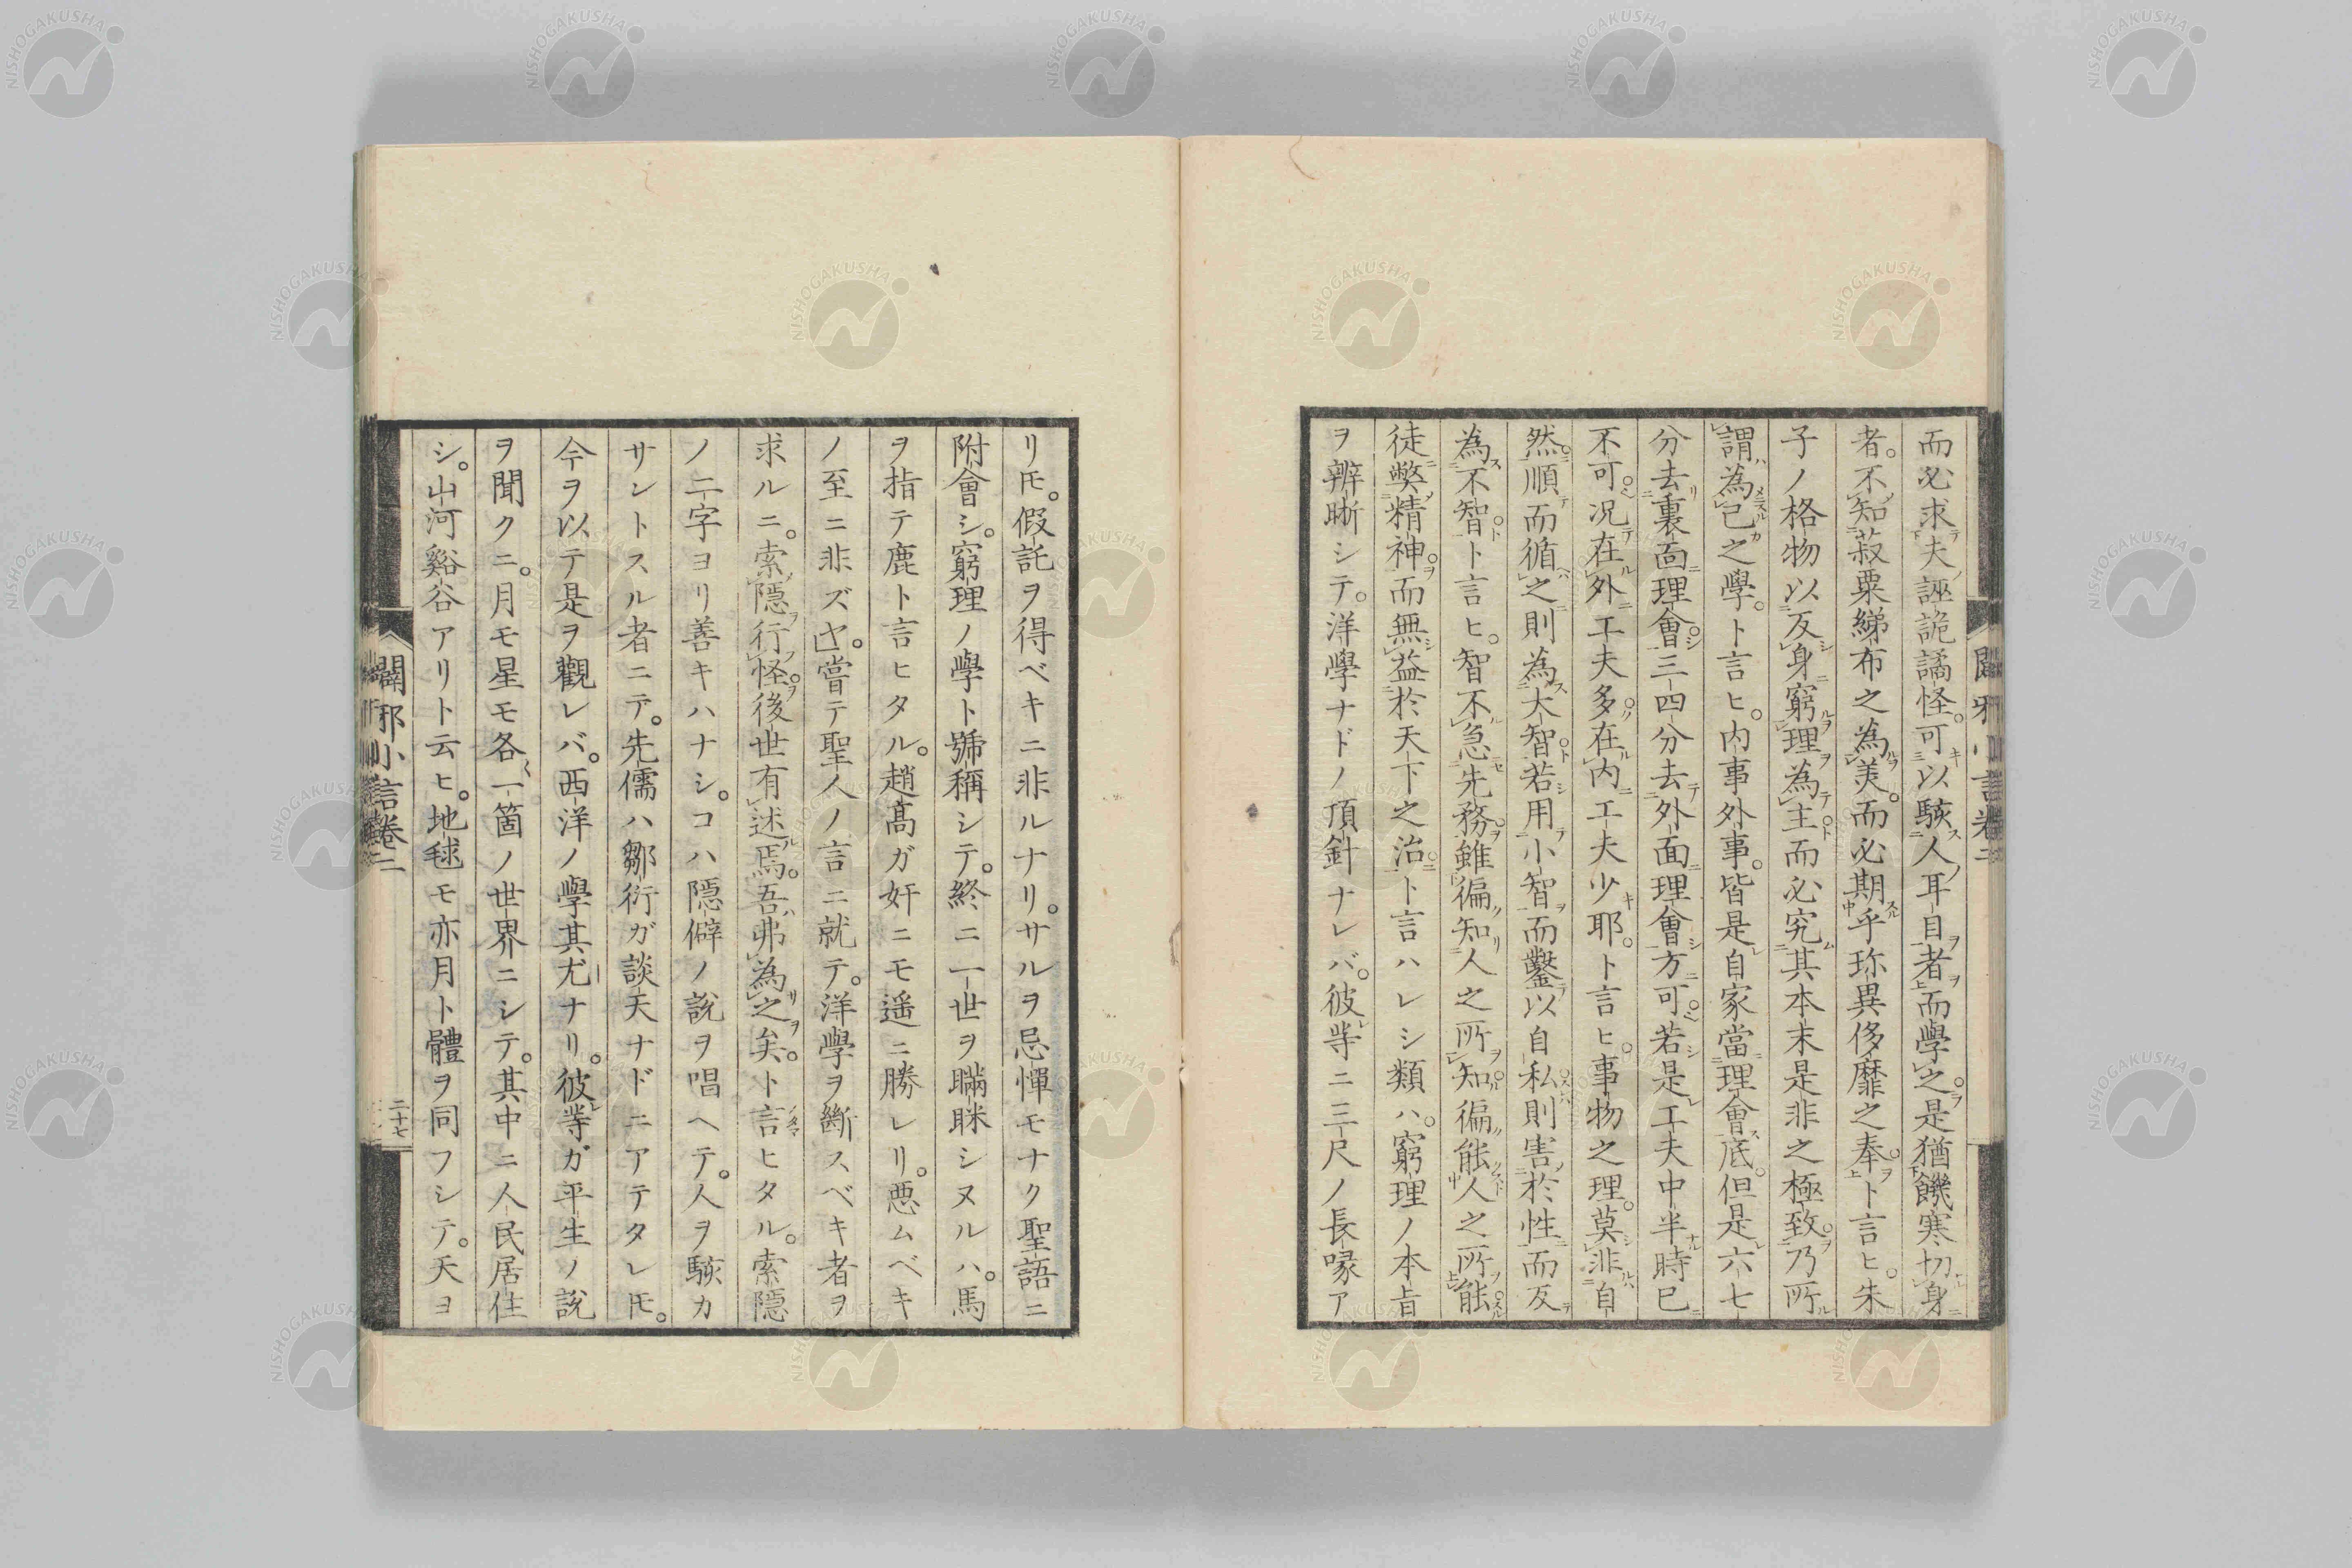 而必求夫誣詭譎怪。可以駭人耳目者而學之。是猶饑寒切身
者。不知菽粟綈布之為美。而必期乎珎異侈靡之奉。ト言ヒ。朱
子ノ格物以反身窮理為主而必究其本末是非之極致。乃所
謂為己之學。ト言ヒ。内事外事。皆是自家當理會底。但是六七
分去裏面理會三四分去外面理會方可若是工夫中半時已
不可況在外工夫多在内工夫少耶。ト言ヒ。事物之理。莫非自
然順而循之則為大智若用小智而鑿以自私則害於性而反
為不智ト言ヒ。智不急先務雖徧知人之所知徧能人之所能
徒弊精神而無益於天下之治ト言ハレシ類ハ。窮理ノ本旨
ヲ辨晰シテ。洋學ナドノ頂針ナレバ。彼等ニ三尺ノ長喙ア
闢邪小言卷二
リ𪜈。假託ヲ得ベキニ非ルナリ。サルヲ忌憚モナク聖語ニ
附會シ。窮理ノ學ト號稱シテ。終ニ一世ヲ瞞眯シヌルハ。馬
ヲ指テ鹿ト言ヒタル。趙高ガ奸ニモ遥ニ勝レリ。悪ムベキ
ノ至ニ非ズヤ。嘗テ聖人ノ言ニ就テ。洋學ヲ斷スベキ者ヲ
求ルニ。索隱行怪後世有述焉。吾弗為之矣。ト言ヒタル。索隱
ノ二字ヨリ善キハナシ。コハ隱僻ノ說ヲ唱ヘテ。人ヲ駭カ
サントスル者ニテ。先儒ハ鄒衍ガ談天ナドニアテタレ𪜈。
今ヲ以テ是ヲ觀レバ。西洋ノ學其尤ナリ。彼等ガ平生ノ說
ヲ聞クニ。月モ星モ各一箇ノ世界ニシテ。其中ニ人民居住
シ。山河谿谷アリト云ヒ。地毬モ亦月ト體ヲ同フシテ。天ヨ
闢邪小言卷二
二十七